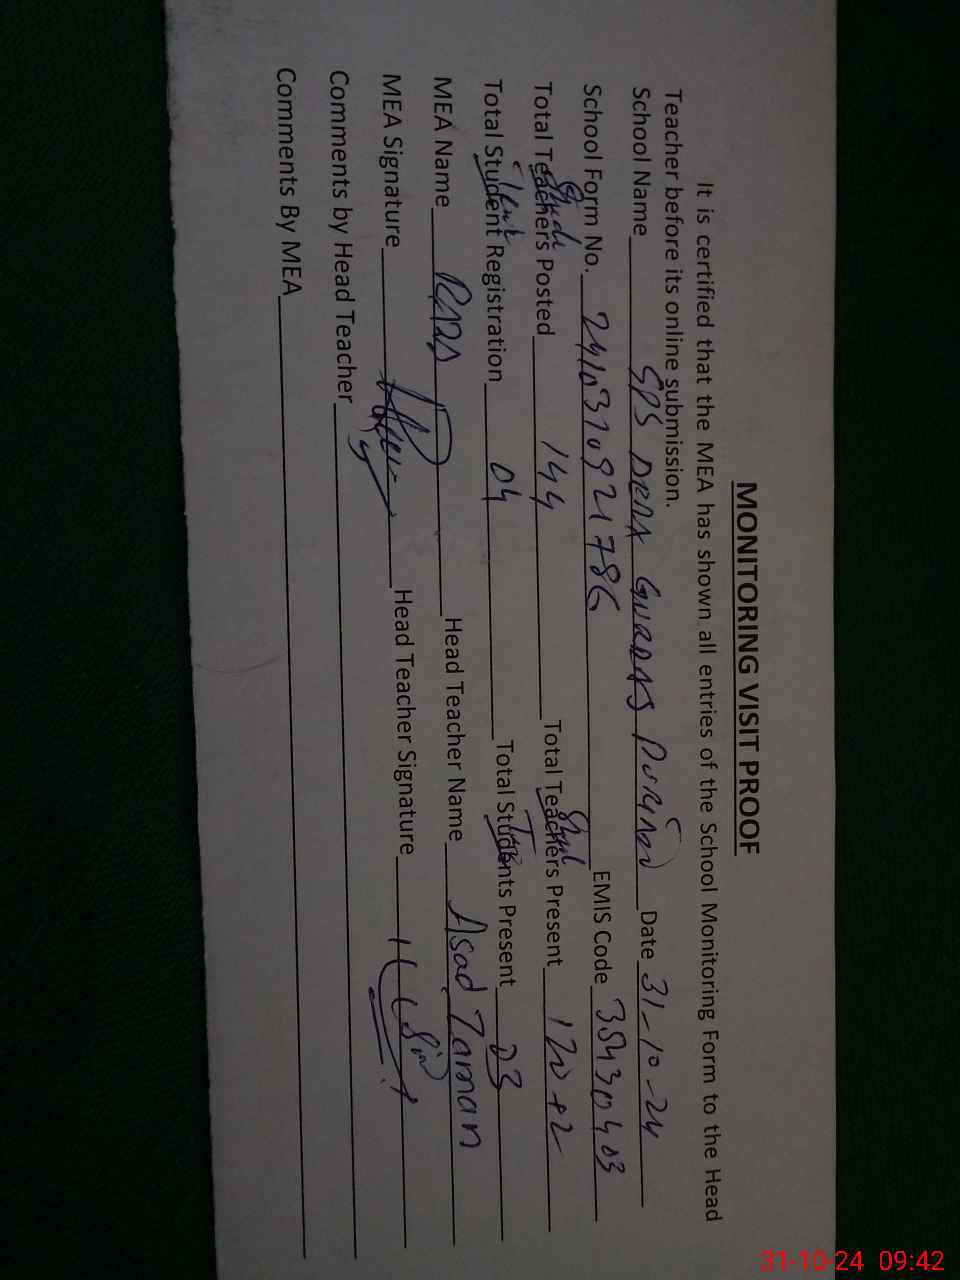 MONITORING VISIT PROOF
It is certified that the MEA has shown all entries of the School Monitoring Form to the Head
Teacher before its online submission.
School Name GPS DERA Date 31-10-24
School Form No. EMIS Code 38430403
Total Teachers Posted 144 Total Teachers Present 120+2
Total Student Registration 04 Total Students Present 03
MEA Name Head Teacher Name Asad Zaman
MEA Signature Head Teacher Signature
Comments by Head Teacher
Comments By MEA
31-10-24 09:42